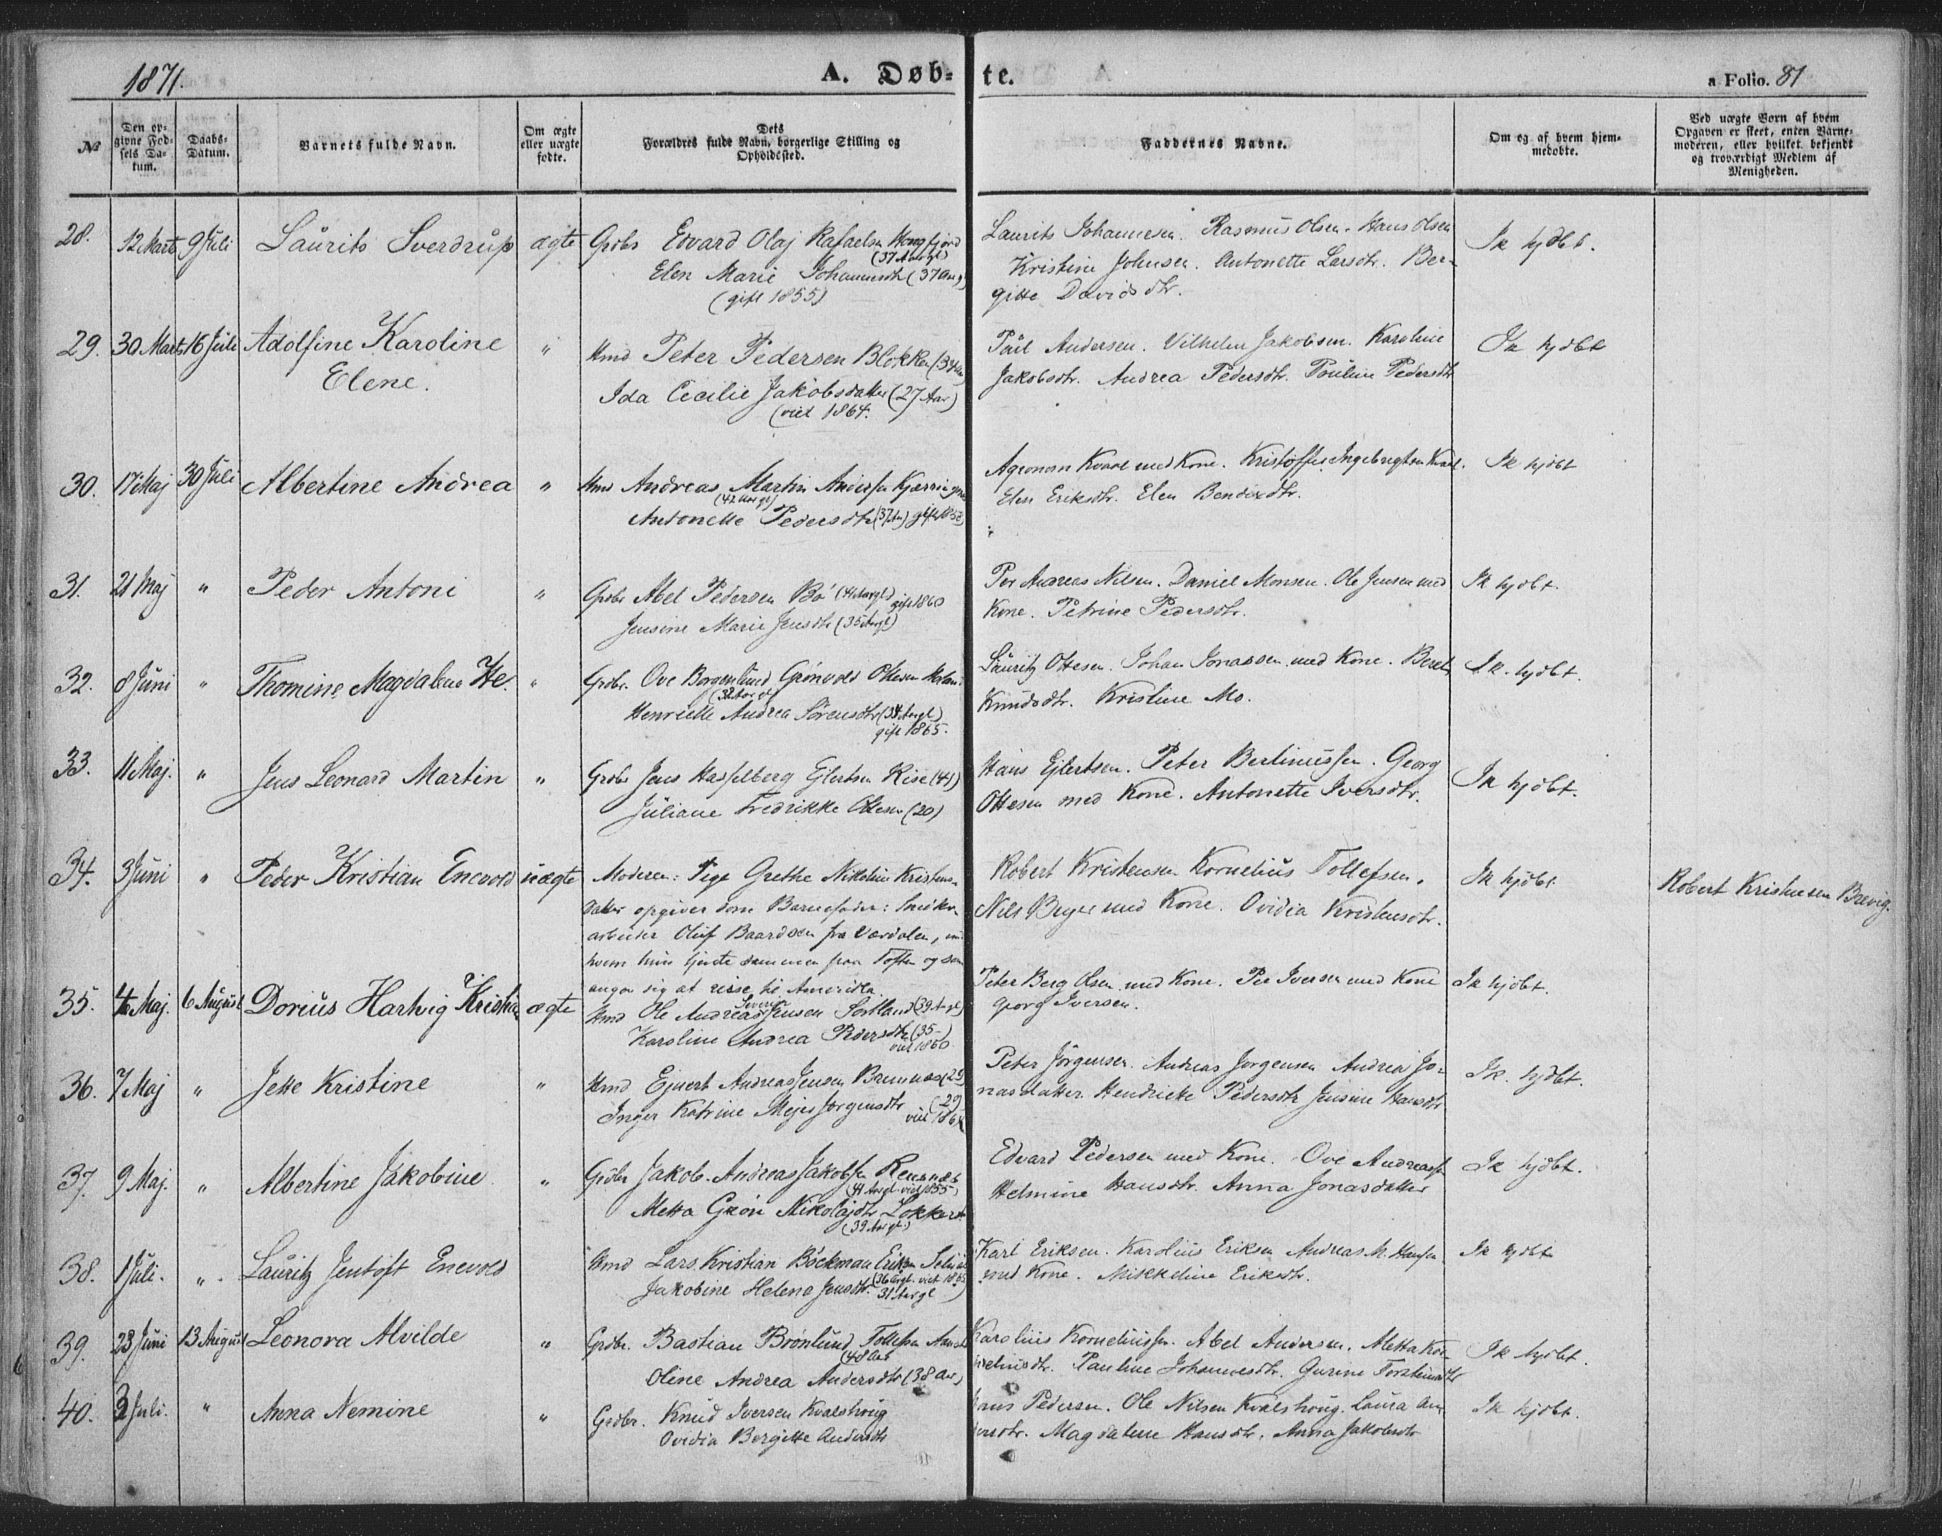 1871.
A. Døb-
te.
a Folio. 81
№
Den op-
givne Fød-
sels Da-
tum.
Daabs-
Datum.
Barnets fulde Navn.
Om ægte
eller uægte
fødte.
Dets
Forældres fulde Navn, borgerlige Stilling og
Opholdssted.
Faddernes Navne.
Om og af hvem hjem-
medøbte.
Ved uægte Børn af hvem
Opgaven er skeet, enten Barne-
moderen, eller hvilket bekjendt
og troværdigt Medlem af
Menigheden.
28. 12 Marts 9 Juli Laurits Sverdrup ægte Grdbr Edvard Olaj Rafaelsen
(37 Aargl)
Elen Marie Johannesdtr (37 Aar)
(gift 1855)
Laurits Johannesen. Rasmus Olsen. Hans Olsen
Kristine Johnsen. Antonette Larsdtr. Ber-
gitte Davidsdtr.
Ik hjdbt.
29. 30 Marts 16 Juli Adolfine Karoline
Elene.
" Hmd Peter Pedersen Blokken (34
Ida Cecilie Jakobsdatter (27 Aar)
(viet 1864.
Paul Andersen. Vilhelm Jakobsen. Karoline
Jakobsdtr. Andrea Pedersdtr. Pouline Pedersdtr
Ik hjdbt
30. 17 Maj 30 Juli Albertine Andrea " Hmd Andreas Martin Anderssen
(42 Aargl)
Antonette Pedersdtr (37 Aar)
Agronom Kvaal med Kone. Kristoffer Ingebrigtsen
Elen Eriksdtr. Elen Bendixdtr.
Ik hjdbt
31. 21 Maj " Peder Antoni " Grdbr Abel Pedersen Bö gift 1860
Jensine Marie Jensdtr (35 Aargl)
Per Andreas Nilsen. Daniel Monsen. Ole Jensen med
Kone. Petrine Pedersdtr.
Ik hjdbt.
32. 8 Juni " Thomine Magdalene " Grdbr. Ove Grönvold Ottesen
Henriette Andrea Sörensdtr
gift 1865.
Lauritz Ottesen. Johan Jonassen med Kone. Beret
Knudsdtr. Kristine Mo.
Ik. hjdbt.
33. 11 Maj. " Jens Leonard Martin " Grdbr Jens Hasselberg Ejlertsen Rise (44)
Juliane Fredrikke Ottesen (20)
Hans Ejlertsen. Peter Bertinussen. Georg
Ottesen med Kone. Antonette Iversdtr.
Ik hjdbt.
34. 3 Juni " Peder Kristian Enevold uægte Moderen: Pige Grethe Nikoline Kristens-
datter opgiver som Barnefader:
arbeider Oluf Baardsen fra Værdalen,
hvem hun tjente sammen paa Toften og som
angav sig at reise til Amerika
Robert Kristensen Kornelius Tollefsen.
Nils Beyer med Kone. Ovidia Kristensdtr.
Ik hjdbt.
Robert Kristensen Brevig.
35. 4 Maj. 6 August Dorius Hartvig Kristian ægte Hmd Ole Andreas Jensen Sortland (39 Aargl)
Karoline Andrea Pedersdtr (35-
viet 1860
Peter Berg Olsen med Kone. Per Iversen med Kone
Georg Iversen.
Ik hjdbt.
36. 7 Maj " Jette Kristine " Hmd Ejnert Andreas Jensen (29
Inger Katrine Meyer Jörgensdtr (29
Peter Jörgensen. Andreas Jörgensen Andrea Jo-
nasdatter. Hendrikke Pedersdtr Jensine Hansdtr
Ik. hjdbt.
37. 9 Maj. " Albertine Jakobine " Grdbr Jakob Andreas Jakobsen
(41 Aargl. viet 1855)
Metta Grön Nikolajdtr
(39 Aargl)
Edvard Pedersen med Kone. Ove Andreassen
Helmine Hansdtr. Anna Jonasdatter
Ik hjdbt.
38. 1 Juli. " Lauritz Jentoft Enevold Hmd Lars Kristian Böckman Eriksen
Jakobine Helene Jensdtr. 31 Aargl
Karl Eriksen. Karolius Eriksen Andreas M. Hansen
med Kone. Mikkeline Eriksdtr.
Ik hjdbt
39. 23 Juni 13 August Leonora Alvilde " Grdbr. Bastian Brönlund Tollefsen
(48 Aar
Oline Andrea Andersdtr (38 Aar)
Karolius Korneliussen. Abel Andersen. Metta Kor-
neliusdtr. Pauline Johannesdtr. Gurine Torsteinsdtr
Ik hjdbt.
40. 2 Juli. " Anna Nemine " Grdbr. Knud Iversen Kvalshoug
Ovidia Bergitte Andersdtr
Hans Pedersen. Ole Nilsen Kvalshoug. Laura An-
dersdtr. Magdalene Hansdtr. Anna Jakobsdtr
Ik hjdbt.